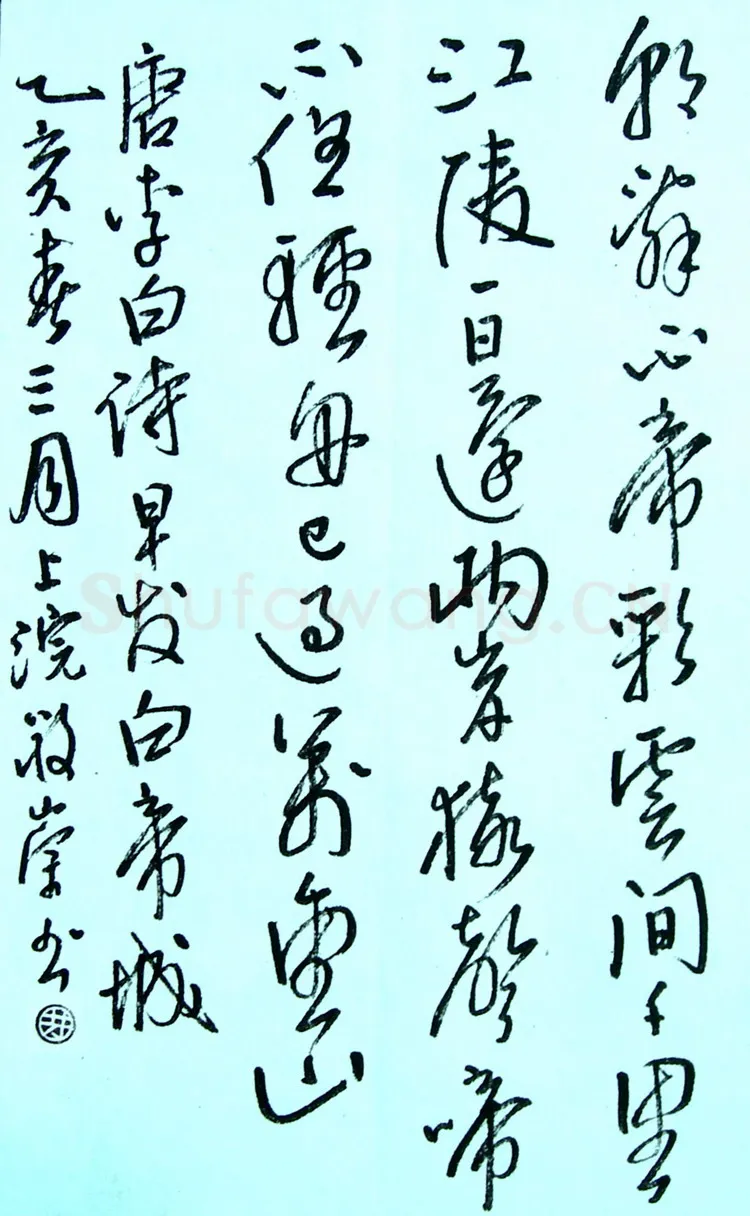 朝辭白帝彩雲间千里
江陵一日還两岸猿聲啼
不住輕舟已過萬重山
唐李白诗早发白帝城
乙亥春三月上浣崇书
Shufawang.CN